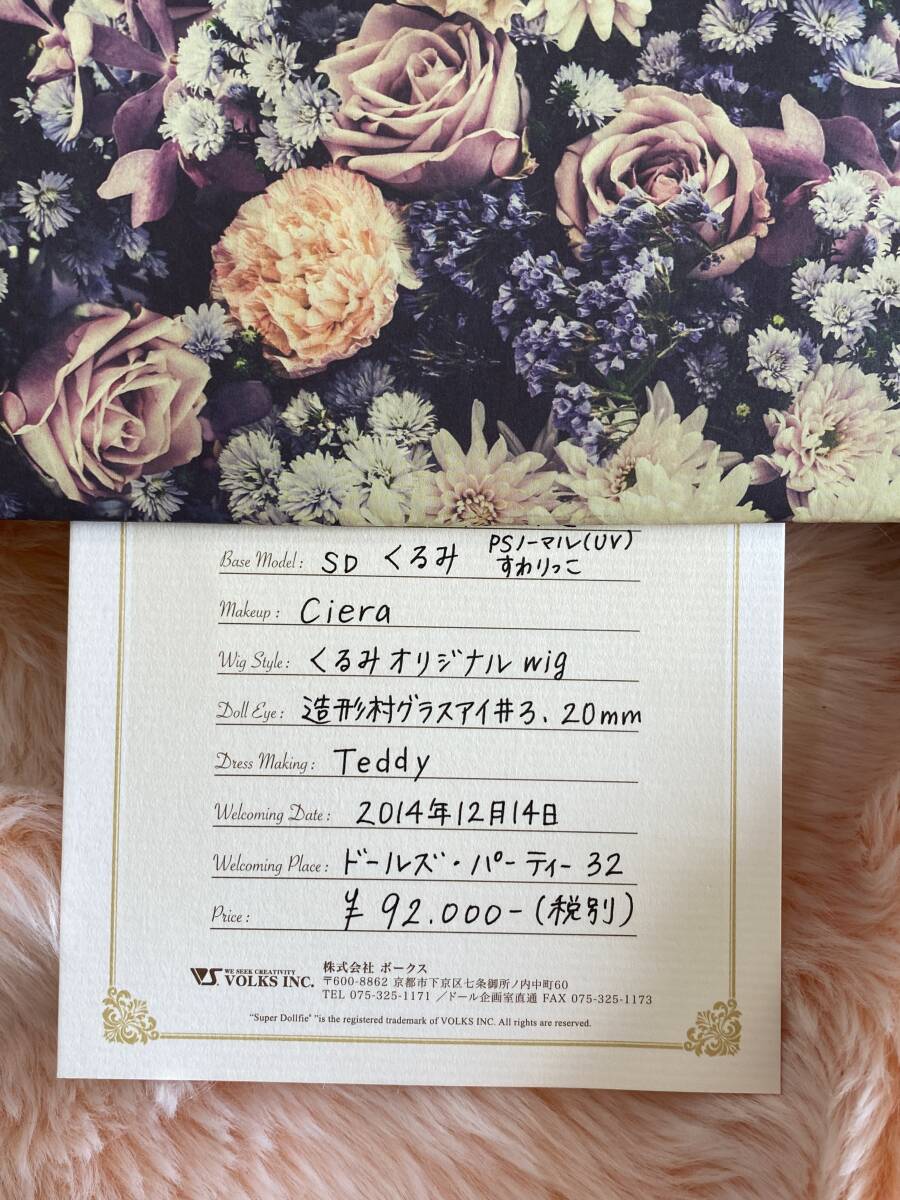 Base Model : SD くるみ PSノーマル(UV)
すわりっこ
Makeup : Ciera
Wig Style : くるみオリジナル wig
Doll Eye : 造形村グラスアイ#3. 20mm
Dress Making : Teddy
Welcoming Date : 2014年12月14日
Welcoming Place : ドールズ・パーティー 32
Price : ¥ 92.000-(税別)
VS. WE SEEK CREATIVITY VOLKS INC.
株式会社 ボークス
〒600-8862 京都市下京区七条御所ノ内中町60
TEL 075-325-1171 ／ドール企画室直通 FAX 075-325-1173
"Super Dollfie® "is the registered trademark of VOLKS INC. All rights are reserved.